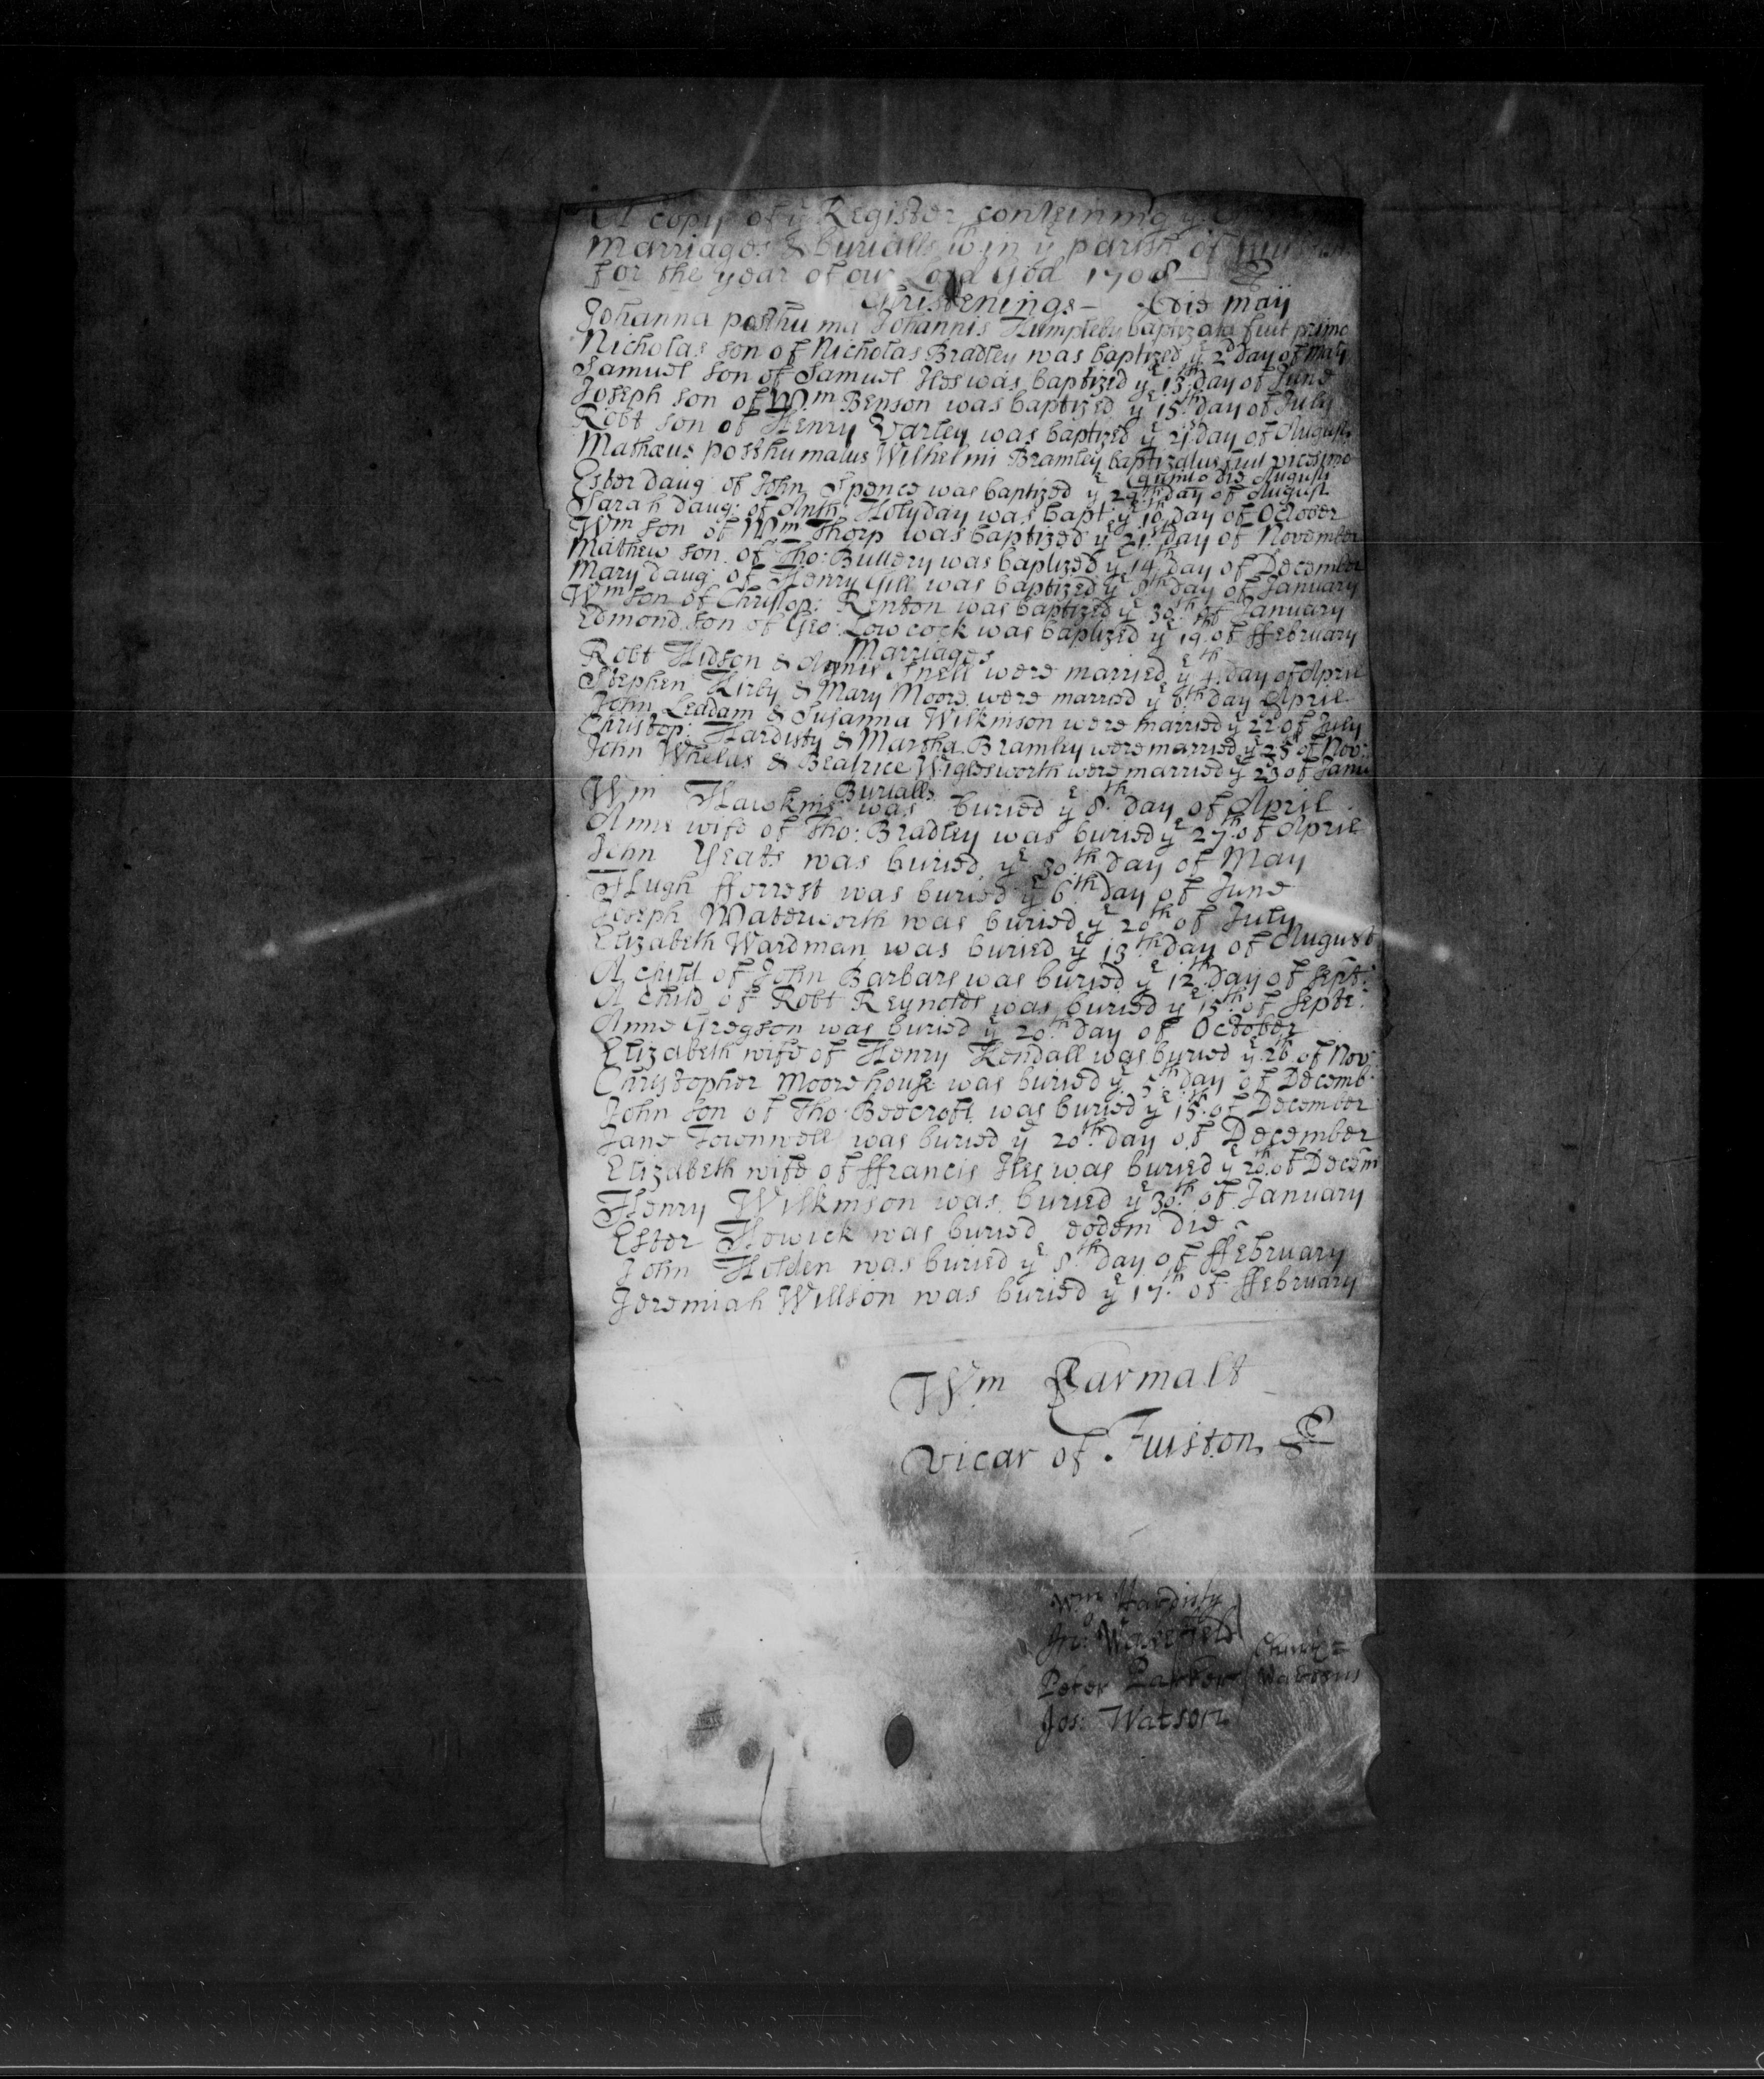 A copy of ye Register conteining ye
Marriages & burialls wthin ye parish of
for the year of our Lord God 1708
Christenings - die Maij
Johanna posthuma Johannis Humpleby baptizata fuit primo
Nicholas son of Nicholas Bradley was baptized ye 2d day of May
Samuel son of Samuel Iles was baptized ye 13th day of June
Joseph son of Wm Benson was baptized ye 15th day of July
Robt son of Henry Varley was baptized ye 21st day of August
Mathæus posthumatus Wilhelmi Bramley baptizatus fuit vicesimo
quinto die Augusti
Ester daug: of John Spence was baptized ye 29th day of August
Sarah daug: of Anth: Holyday was bapt: ye 10th day of October
Wm son of Wm Thorp was baptized ye 21st day of November
Mathew son of Tho: Buttery was baptized ye 14th day of December
Mary daug: of Henry Gill was baptized ye 8th day of January
Wm son of Christop: Renton was baptized ye 30th of January
Edmond son of Geo: Lowcock was baptized ye 19th of ffebruary
Marriages
Robt Hidson & Annie Snell were married ye 4th day of April
Stephen Kirby & Mary Moore were married ye 8th day April
John Leadam & Susanna Wilkinson were married ye 22d of July
Christop: Hardisty & Martha Bramley were married ye 25th of Nov:
John Whelas & Beatrice Wiglesworth were married ye 23d of Janu
Burialls
Wm Hawkins was buried ye 8th day of April
Anne wife of Tho: Bradley was buried ye 27th of April
John Yeats was buried ye 30th day of May
Hugh fforrest was buried ye 6th day of June
Joseph Waterworth was buried ye 20th of July
Elizabeth Wardman was buried ye 13th day of August
A child of John Barbars was buried ye 12th day of Sept:
A child of Robt Reynolds was buried ye 15th of Septr:
Anne Gregson was buried ye 20th day of October
Elizabeth wife of Henry Kendall was buried ye 26 of Nov:
Christopher Moorehouse was buried ye 5th day of Decemb:
John son of Tho: Beecroft was buried ye 15th of December
Jane Townwell was buried ye 20th day of December
Elizabeth wife of ffrancis Iles was buried ye 20th of Decem
Henry Wilkinson was buried ye 30th of January
Ester Howick was buried eodem die
John Holden was buried ye 8th day of ffebruary
Jeremiah Willson was buried ye 17th of ffebruary
Wm Parmalt
vicar of Fuiston
Wm Hardisty
Jno: Wakefield
Peter Parker
Jos: Watson
Church=
wardens